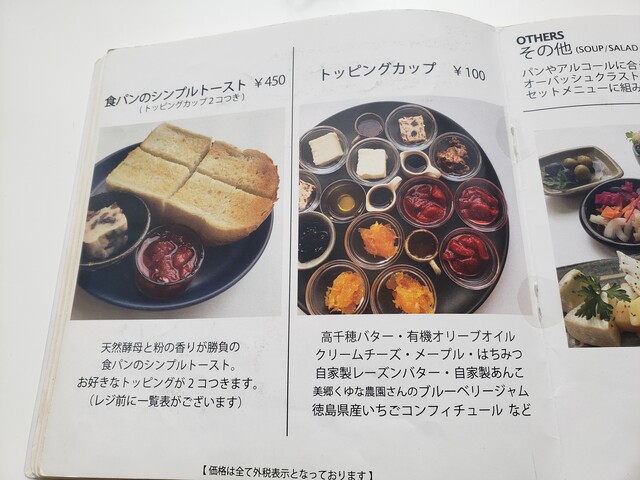 食パンのシンプルトースト ¥450
(トッピングカップ2コつき)
天然酵母と粉の香りが勝負の
食パンのシンプルトースト。
お好きなトッピングが2コつきます。
(レジ前に一覧表がございます)
トッピングカップ ¥100
高千穂バター・有機オリーブオイル
クリームチーズ・メープル・はちみつ
自家製レーズンバター・自家製あんこ
美郷くゆな農園さんのブルーベリージャム
徳島県産いちごコンフィチュール など
【価格は全て外税表示となっております】
OTHERS
その他 (SOUP/SALAD
パンやアルコールに合
オーバッシュクラスト
セットメニューに組み